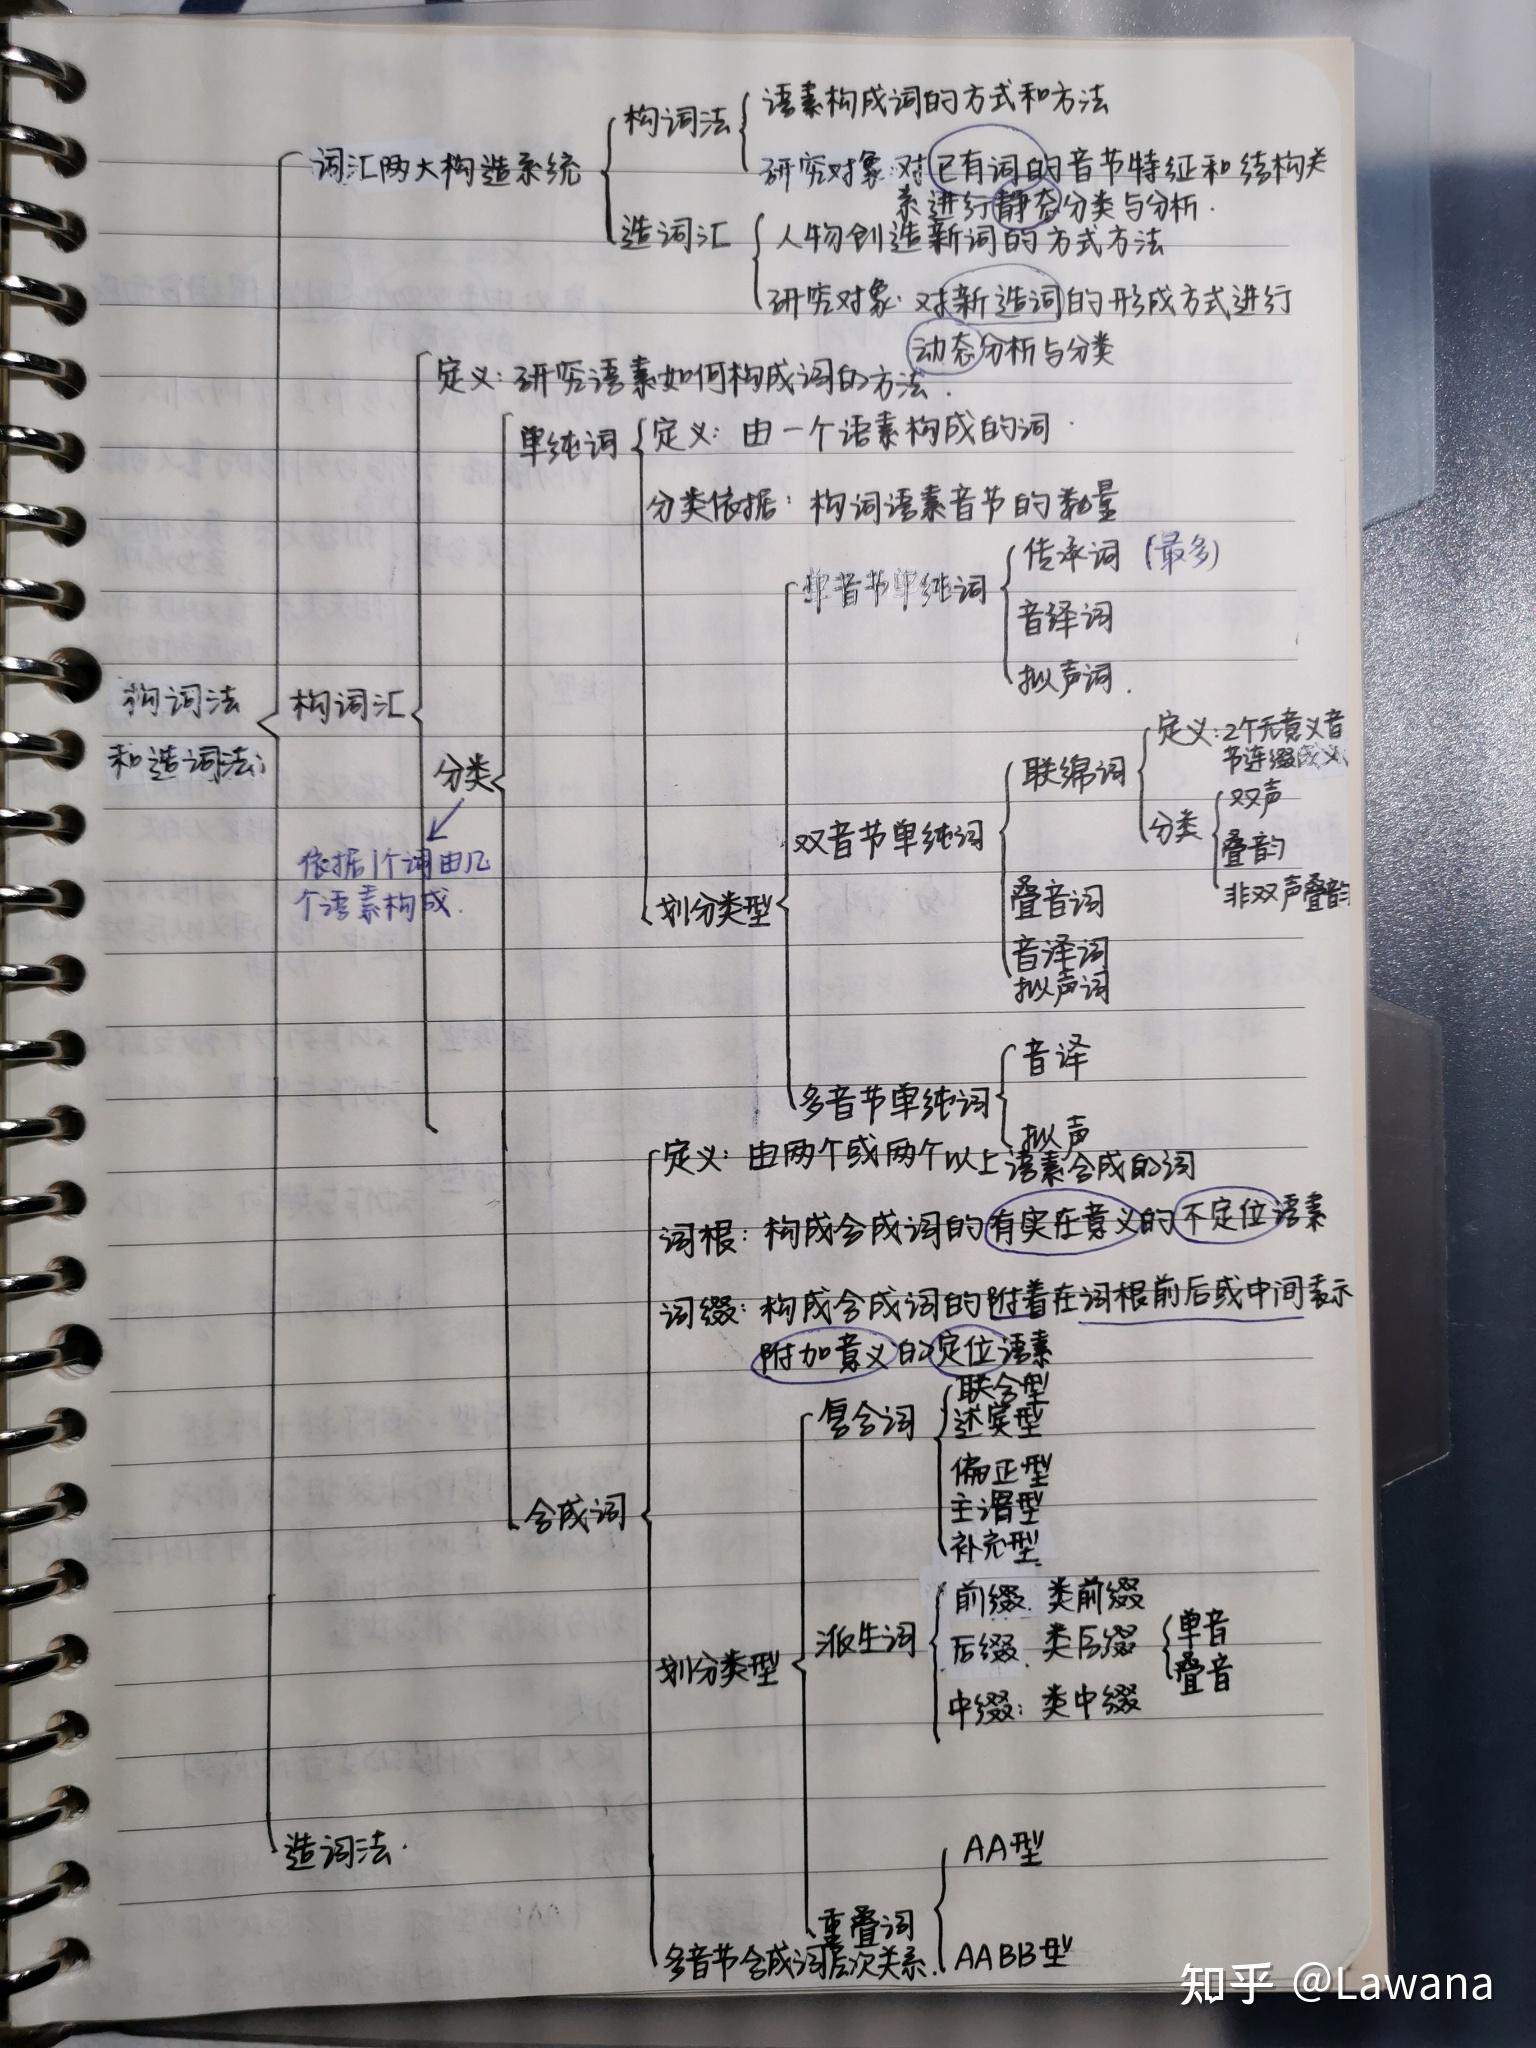 构词法
语素构成词的方式和方法
词汇两大构造系统
研究对象:对已有词的音节特征和结构关
系进行静态分类与分析.
造词汇
人物创造新词的方式方法
研究对象:对新造词的形成方式进行
动态分析与分类
定义:研究语素如何构成词的方法.
单纯词
定义:由一个语素构成的词.
分类依据:构词语素音节的数量
单音节单纯词
传承词(最多)
音译词
拟声词.
构词法
和造词法:
构词汇
分类
依据1个词由几
个语素构成.
联绵词
定义:2个无意义音
节连缀成义
分类
双声
叠韵
非双声叠韵
双音节单纯词
叠音词
音译词
拟声词
划分类型
多音节单纯词
音译
拟声
定义:由两个或两个以上语素合成的词
词根:构成合成词的有实在意义的不定位语素
词缀:构成合成词的附着在词根前后或中间表示
附加意义的定位语素
复合词
联合型
述宾型
偏正型
主谓型
补充型
合成词
划分类型
派生词
前缀.类前缀
后缀.类后缀
单音
叠音
中缀:类中缀
造词法.
重叠词
AA型
AABB型
多音节合成词层次关系.
知乎 @Lawana